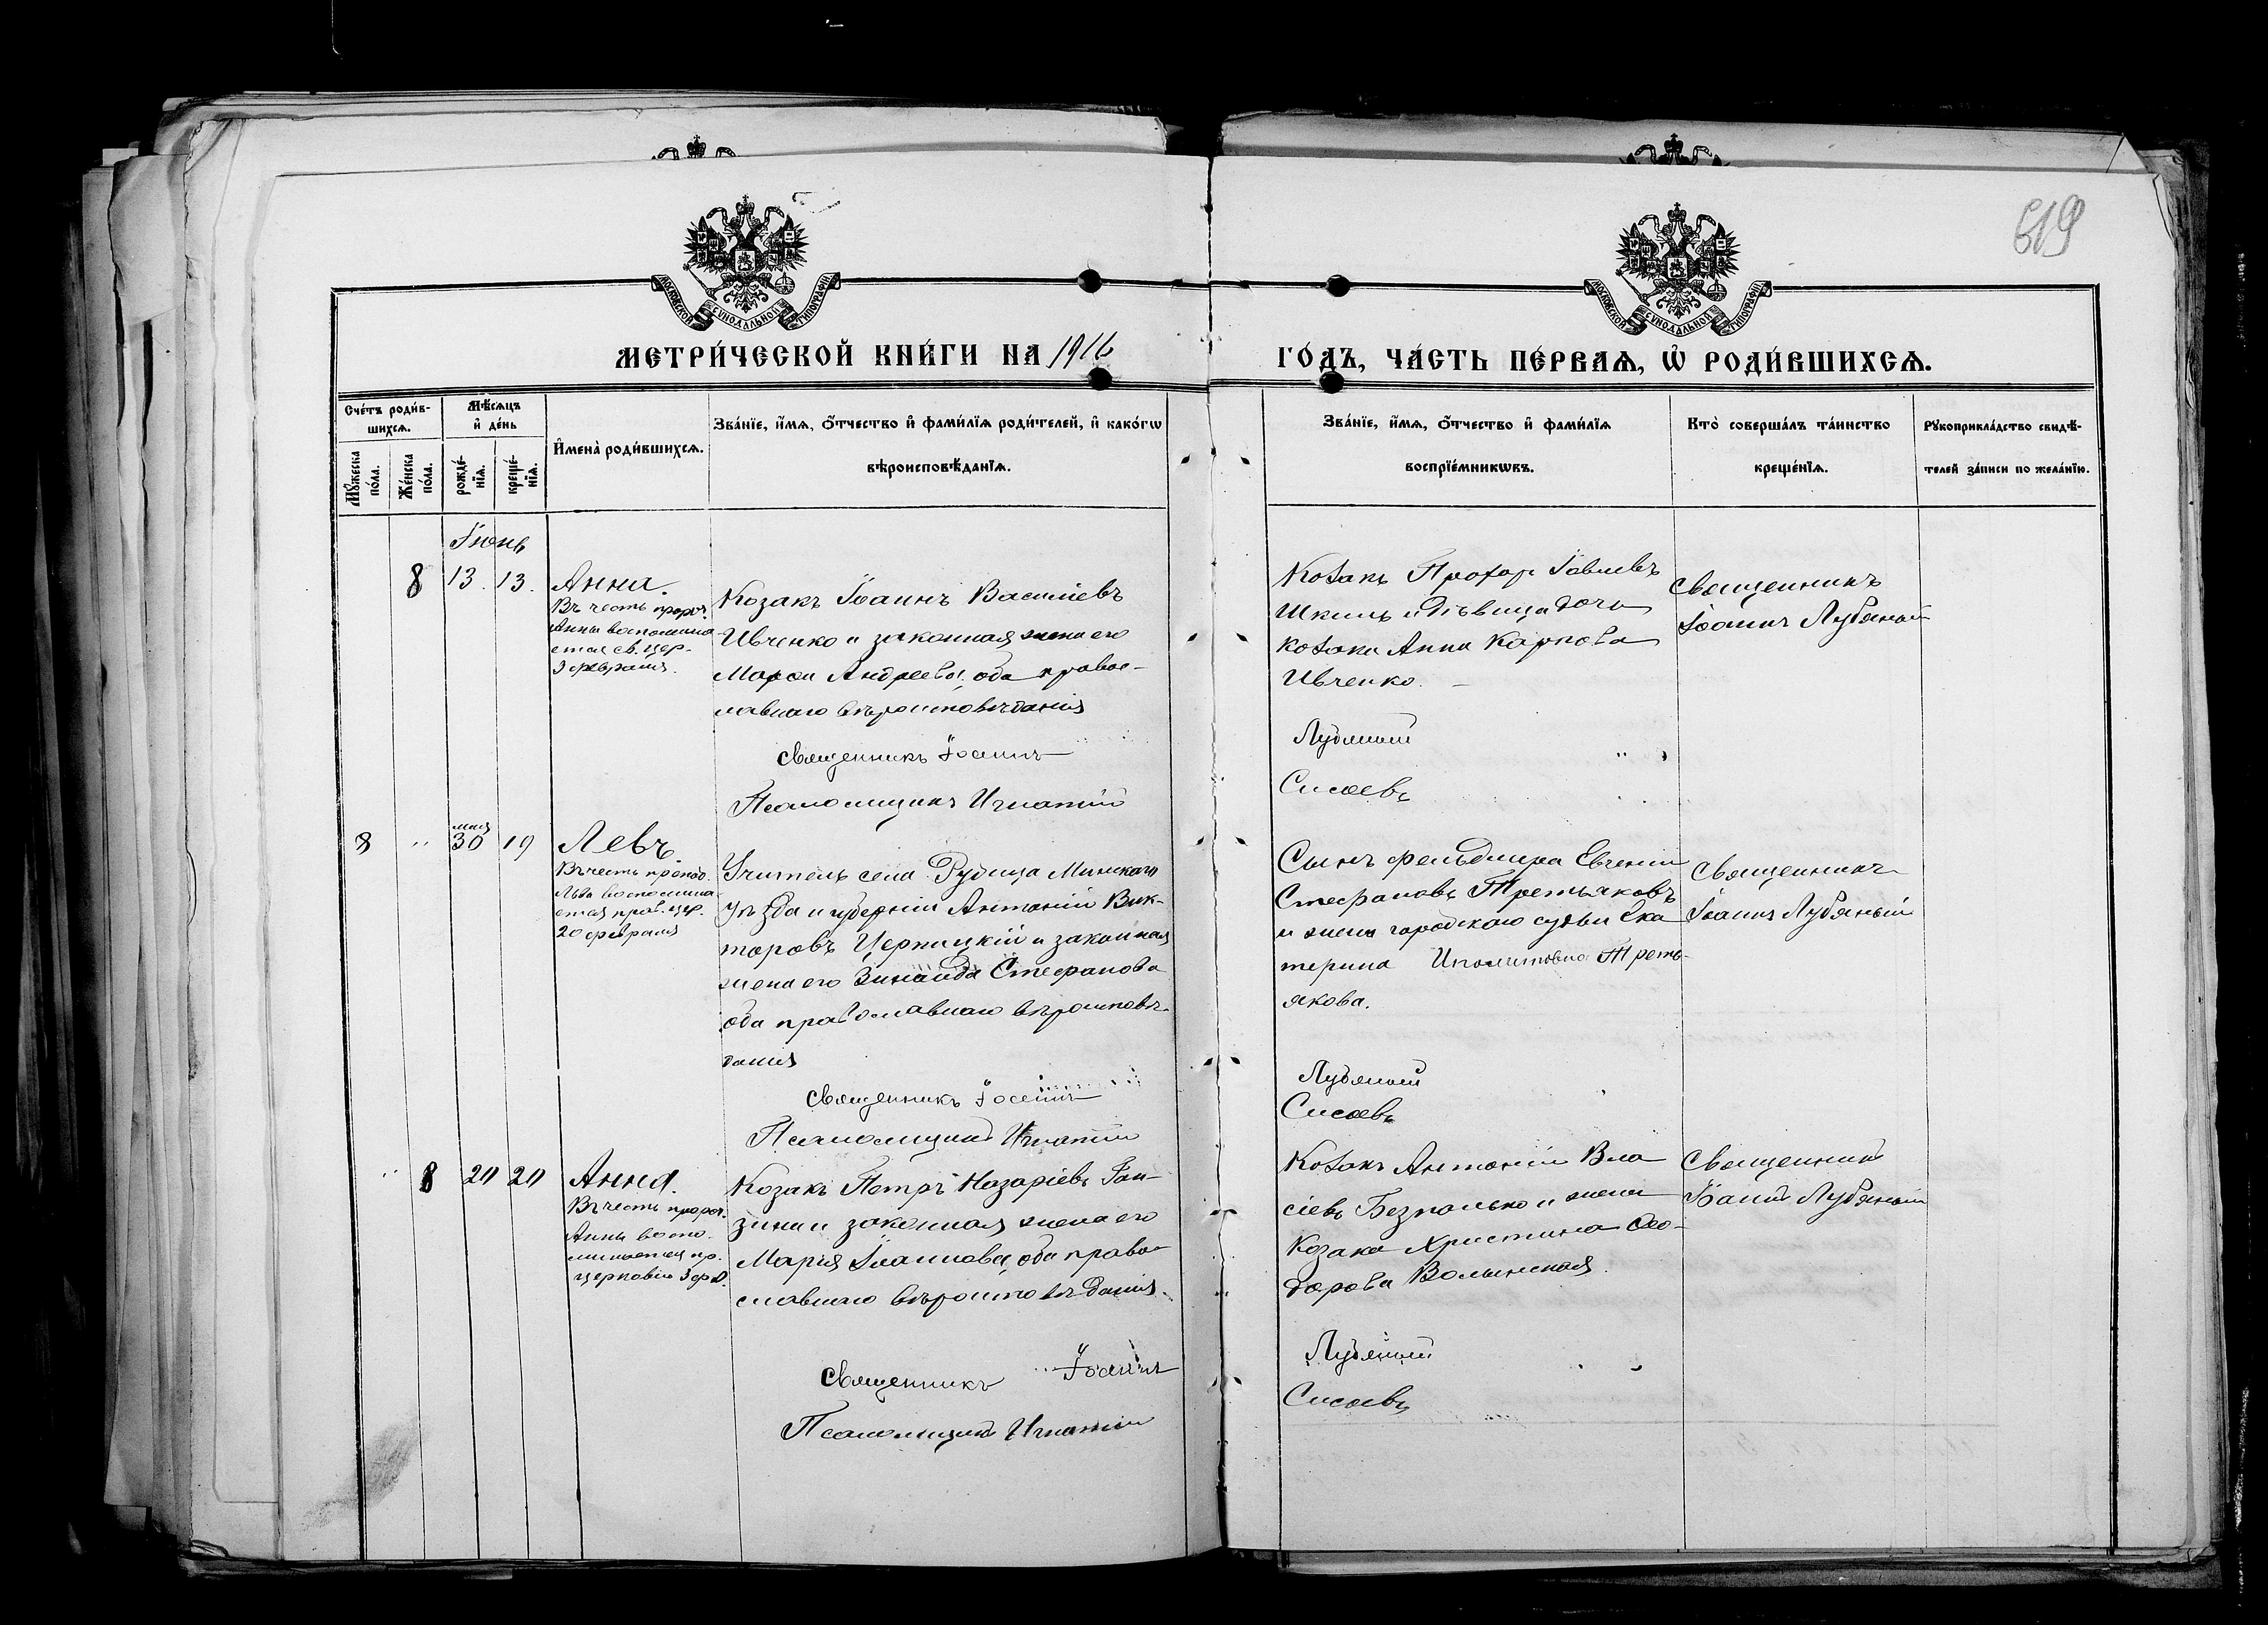 619
МОСКОВСКОЙ СѴНОДАЛЬНОЙ ТИПОГРАФІИ
МОСКОВСКОЙ СѴНОДАЛЬНОЙ ТИПОГРАФІИ
МЕТРИ́ЧЕСКОЙ КНИ́ГИ НА 1916
ГО́ДЪ, ЧА́СТЬ ПЕ́РВАѦ, Ѽ РОДИ́ВШИХСѦ.
Сче́тъ роди́в-
шихсѧ.
Мꙋ́жеска по́ла.
Же́нска по́ла.
Мѣ́сѧцъ
и҆ де́нь
рожде́-
нїѧ.
креще́-
нїѧ.
И҆мена̀ роди́вшихсѧ.
Зва́нїе, и҆́мѧ, ѻ҆́тчество и҆ фами́лїѧ роди́телей, и҆ како́гѡ
вѣроисповѣ́данїѧ.
Зва́нїе, и҆́мѧ, ѻ҆́тчество и҆ фами́лїѧ
воспрїе́мникѡвъ.
Кто̀ соверша́лъ та́инство
креще́нїѧ.
Рꙋкоприкла́дство свидѣ́-
телей за́писи по жела́нїю.
Іюнь
8 13. 13. Анна.
Въ честь пророч.
Анны воспомина-
емая св. цер.
3 февраля.
Козакъ Іоаннъ Василіевъ
Ивченко и законная жена его
Марфа Андреева, оба правос-
лавнаго вѣроисповѣданія
Священникъ Іоаннъ
Псаломщикъ Игнатій
Козакъ Прохоръ Іовлевъ
Шкиль и дѣвица дочь
козака Анна Карпова
Ивченко.
Лубяный
Сисоевъ
Священникъ
Іоаннъ Лубяный
8 " мая 30 19 Левъ
Въ честь препод.
Льва воспомина-
емая прав. цер.
20 февраля
Учитель села Рубица Минскаго
уѣзда и губерніи Антоній Вик-
торовъ Церпицкій и законная
жена его Зинаида Стефанова
оба православнаго вѣроисповѣ-
данія
Священникъ Іоаннъ
Псаломщикъ Игнатій
Сынъ фельдшера Евгеній
Стефановъ Третьяковъ
и жена городскаго судьи Ека
терина Иполитовна Треть-
якова.
Лубяный
Сисоевъ
Священникъ
Іоаннъ Лубяный
" 8 20 20 Анна.
Въ честь пророч.
Анны воспо-
минаемая пр.
церковью 3 фев.
Козакъ Петръ Назаріевъ Ган-
зин и законная жена его
Марія Іоаннова, оба право-
славнаго вѣроисповѣданія.
Священникъ Іоаннъ
Псаломщикъ Игнатій
Козакъ Антоній Вла
сіевъ Безпалько и жена
козака Христина Ѳео-
дорова Волынская.
Лубяный
Сисоевъ
Священникъ
Іоаннъ Лубяный